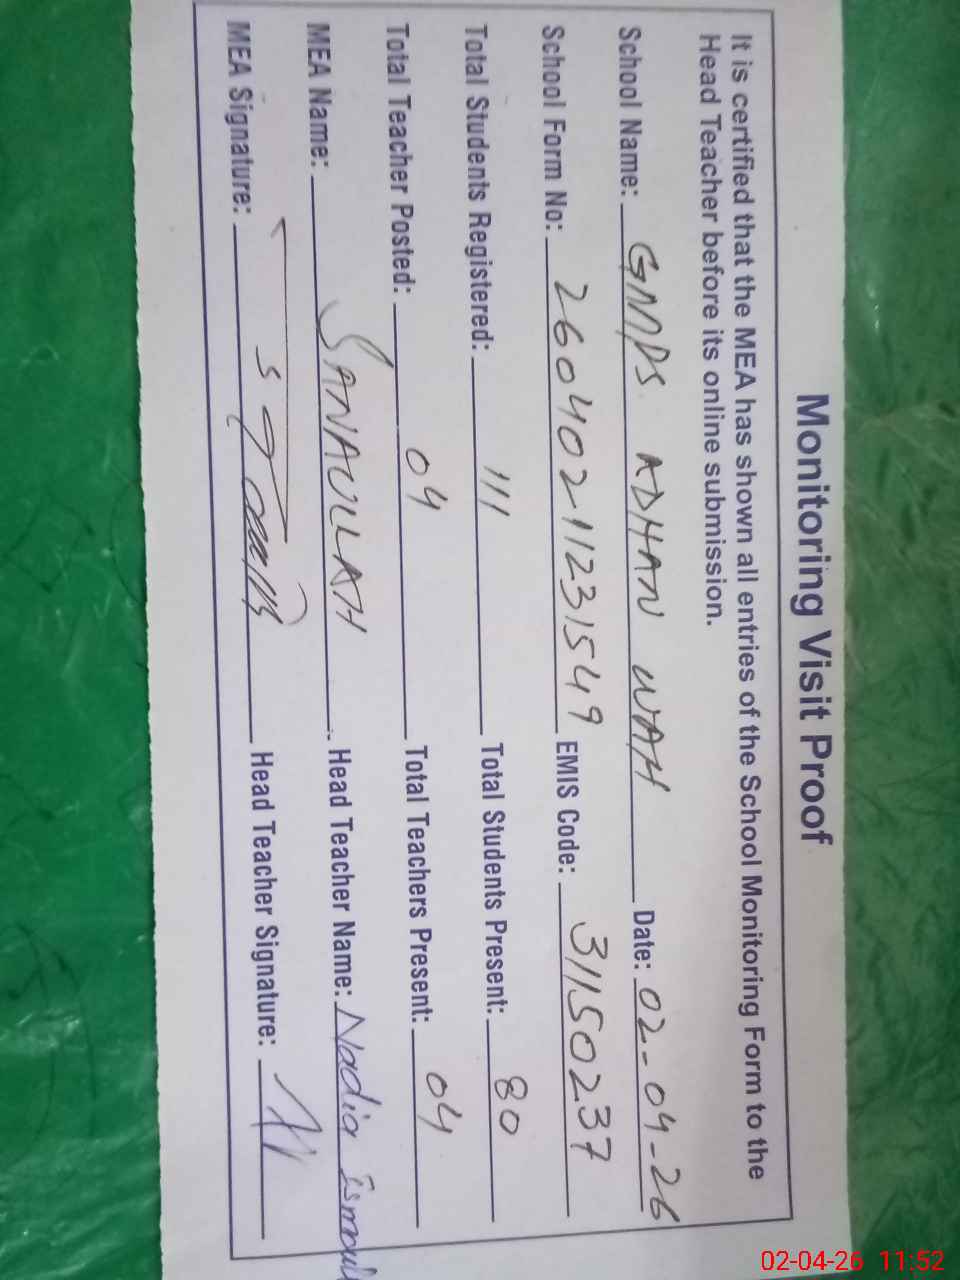 Monitoring Visit Proof
It is certified that the MEA has shown all entries of the School Monitoring Form to the
Head Teacher before its online submission.
School Name: GMPS ADHAN WAH Date: 02-04-26
School Form No: 26040211231549 EMIS Code: 31150237
Total Students Registered: 111 Total Students Present: 80
Total Teacher Posted: 04 Total Teachers Present: 04
MEA Name: SANAULLAH Head Teacher Name: Nadia Ismail
MEA Signature: Head Teacher Signature:
02-04-26 11:52